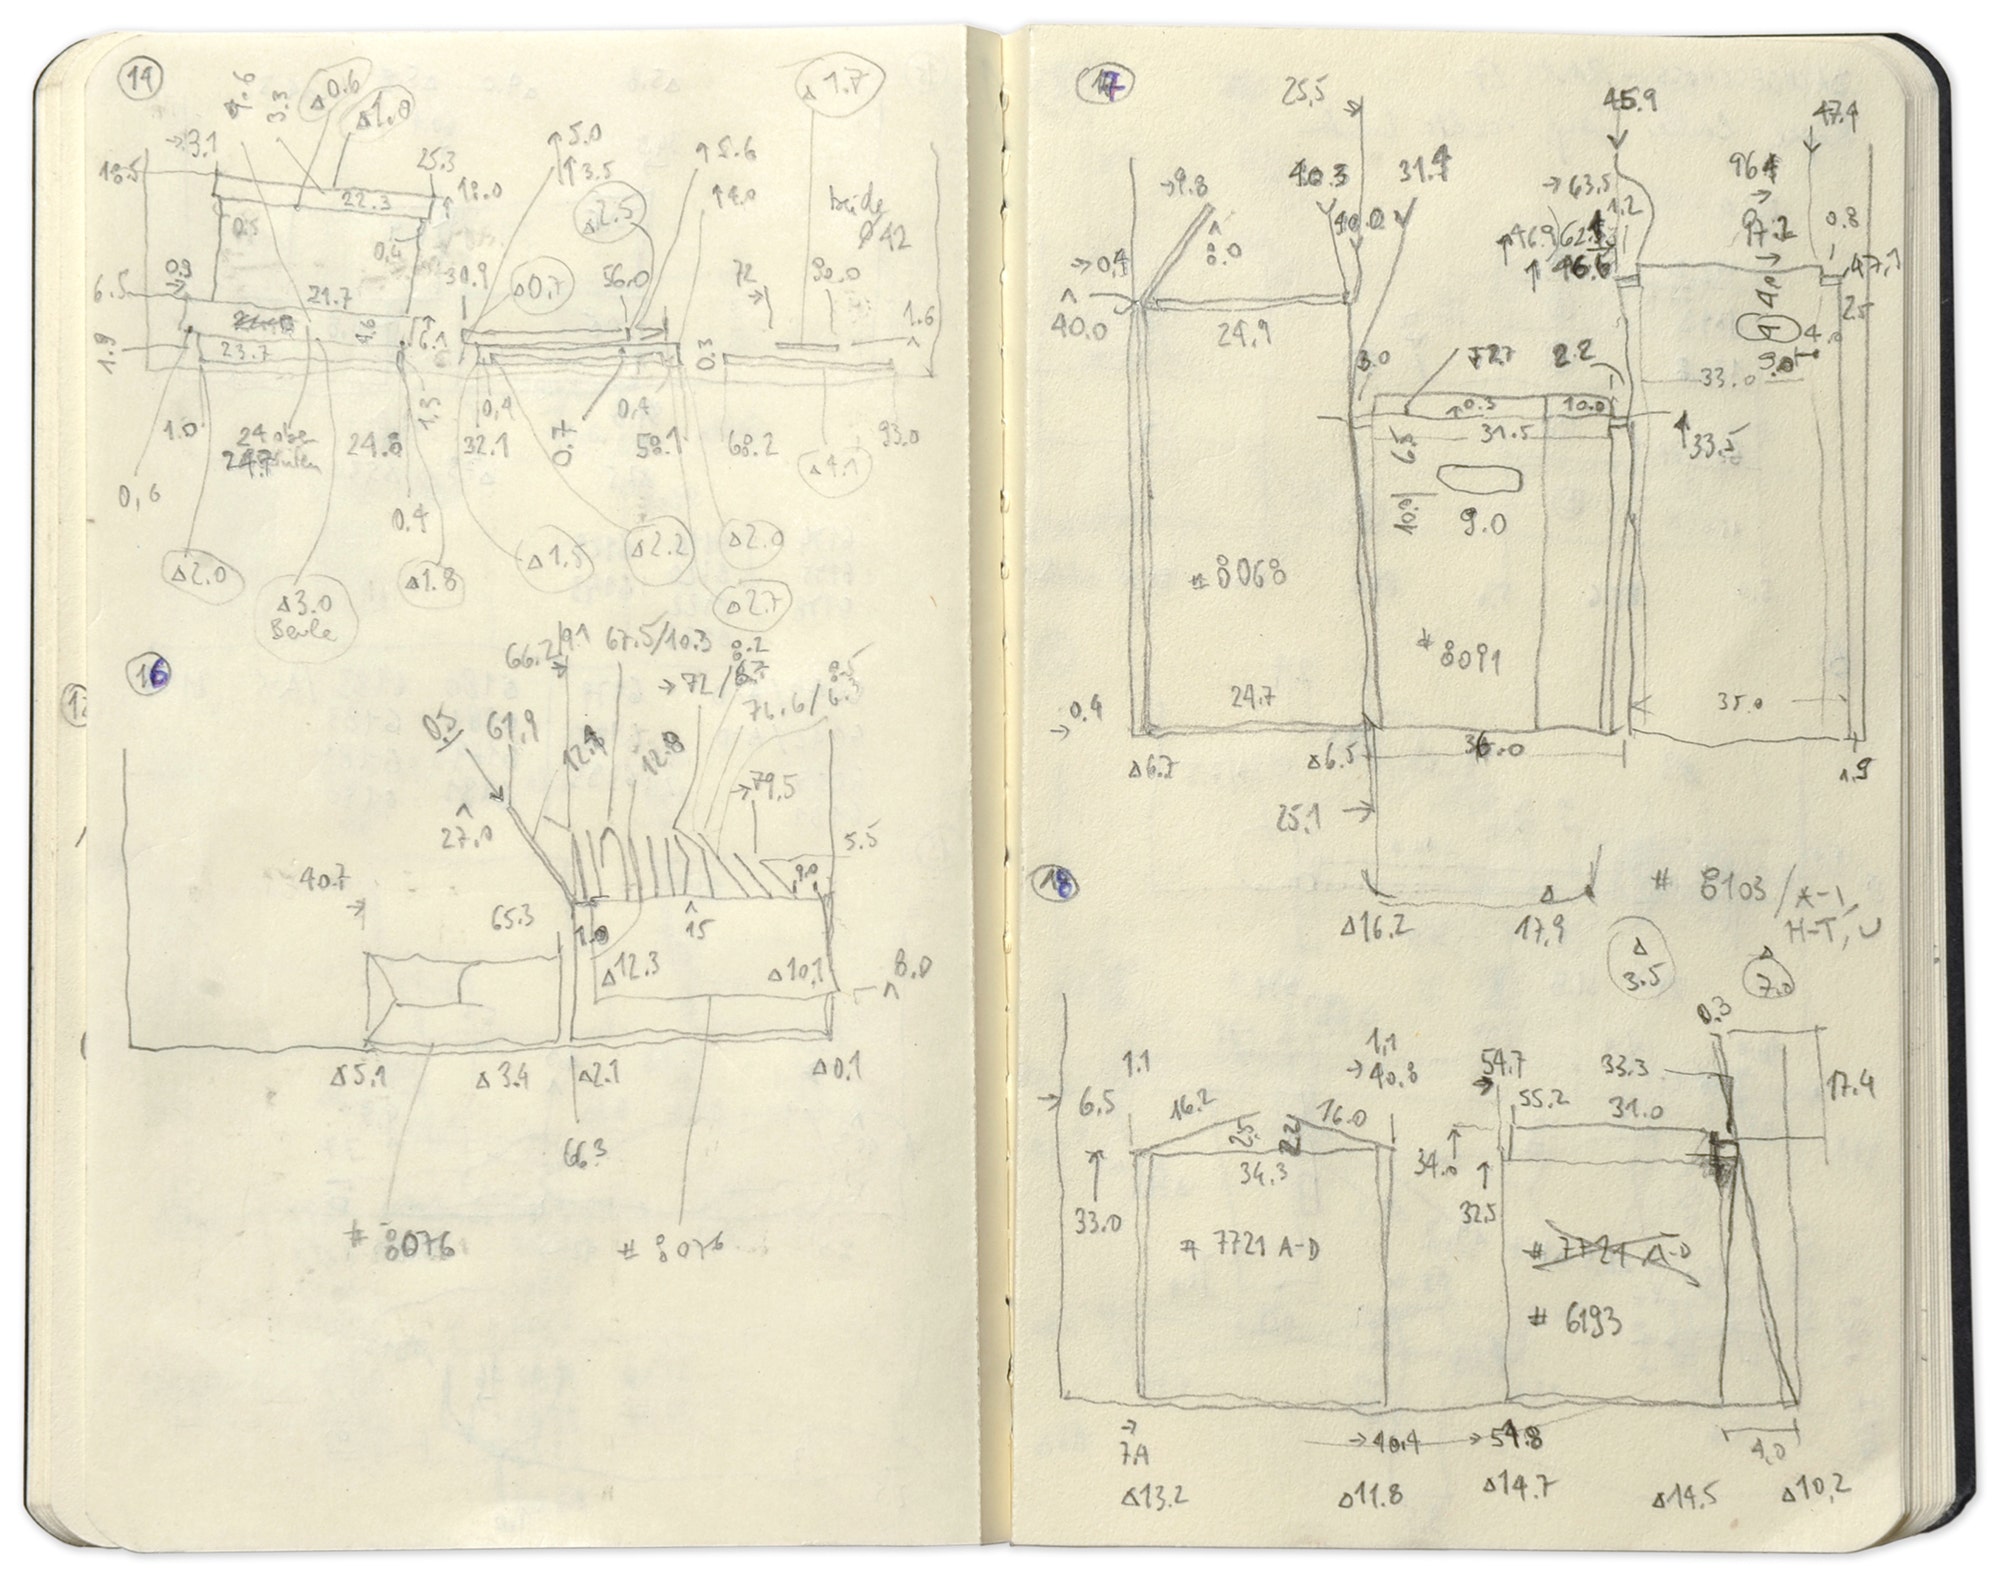 14
4.6
3.3
Δ0.6
Δ1.0
Δ1.7
→3.1
18.5
25.3
↑18.0
22.3
0.5
0.4
↑5.0
↑3.5
↑5.6
↑4.0
Δ2.5
beide
Ø42
0.9
6.5
21.7
30.9
Δ0.7
56.0
72
90.0
1.6
1.9
23.7
4.6
6.1
0.3
1.0
24 oben
24.7 unten
24.8
1.3
32.1
0,4
0.7
0,4
58.1
68.2
Δ4.1
93.0
0,6
0.4
Δ2.0
Δ3.0
Beule
Δ1.8
Δ1.5
Δ2.2
Δ2.0
Δ2.7
16
66.2/9.1
67.5/10.3
8.2
→72/6.7
8.5
76.6/
0.5
61,9
12.8
→79,5
27,0
5.5
9.0
40.7
65.3
1.0
15
Δ12.3
Δ10,1
8.0
Δ5,1
Δ3.4
Δ2.1
Δ0,1
66.3
# 8076
# 8076
17
25,5
45.9
47.4
→9.8
40.3
31.4
→63,5
1.2
96.4
→
97.2
0.8
→0,4
8.0
40.0
↑46.9
↑46.6
47,1
2.5
40.0
24,9
3.0
2.2
4.0
9.0
33.0
↑0.3
10.0
31.5
6.5
↑33.5
10.9
9.0
# 8068
# 8091
→0.4
24.7
35.0
Δ6.7
Δ6.5
36.0
1.9
25.1→
18
# 8103/A-I,
H-T, U
Δ16.2
17,9
Δ
3.5
Δ
7.0
0.3
1.1
1,1
→40.8
54.7
33.3
17.4
→6.5
16.2
16.0
55.2
31.0
2.5
2.2
34.3
34.0
33.0
32.5
# 7721 A-D
# 7721 A-D
# 6193
→
→40.4
→54.8
4,0
Δ13.2
Δ11.8
Δ14.7
Δ14.5
Δ10,2